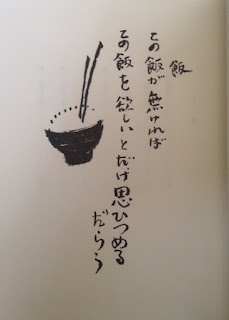 飯
この飯が無ければ
この飯を欲しいとだけ思ひつめる
だらう